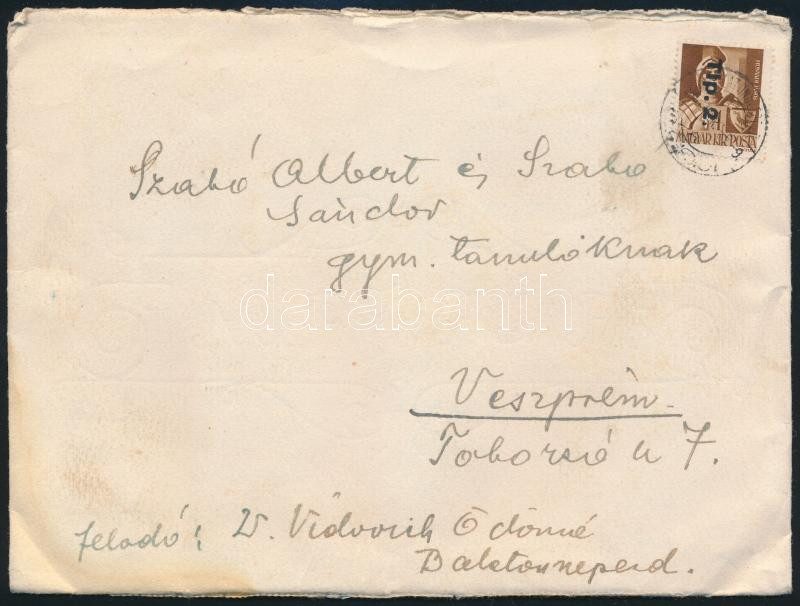 Tlp. 2.
MAGYAR KIR. POSTA
Szabó Albert és Szabo
Sándor
gym. tanulóknak
darabanth
Veszprém
Toborzó u 7.
feladó: Vidovich Ödönné